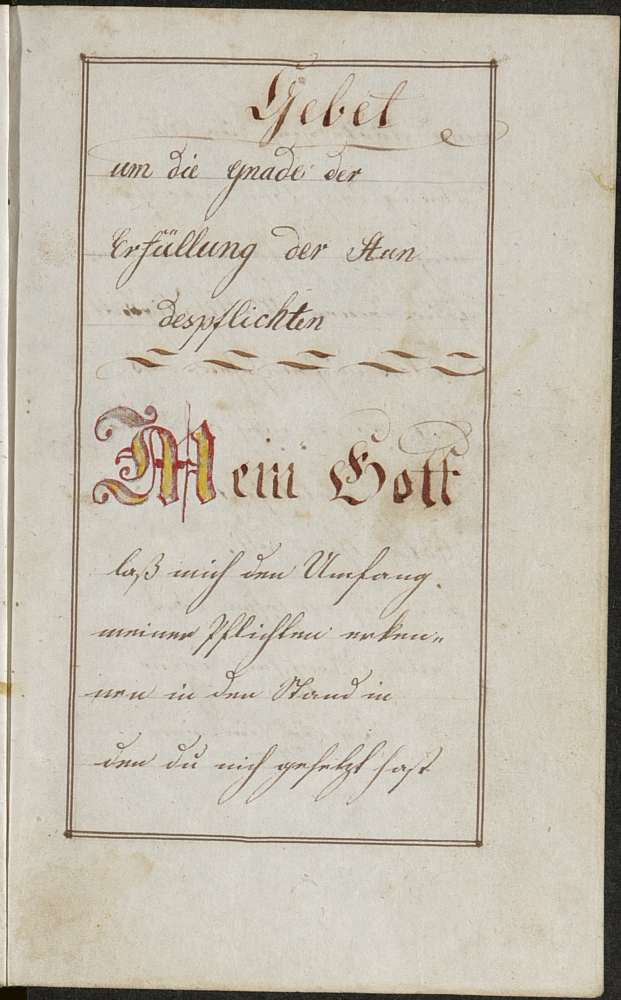 Gebet
um die gnade der
Erfüllung der Stan
despflichten
Mein Gott
laß mich den Umfang
meiner Pflichten erken„
nen in den Stand in
den du mich gesetzt hast